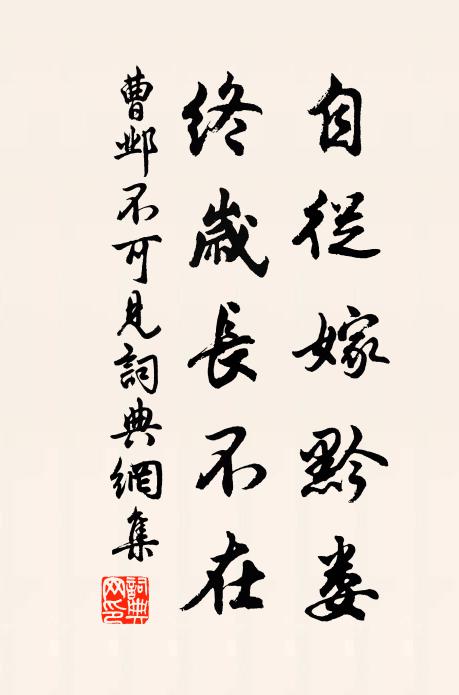 自從嫁黔婁
終歲長不在
曹鄴不可見詞典網集
詞典网印